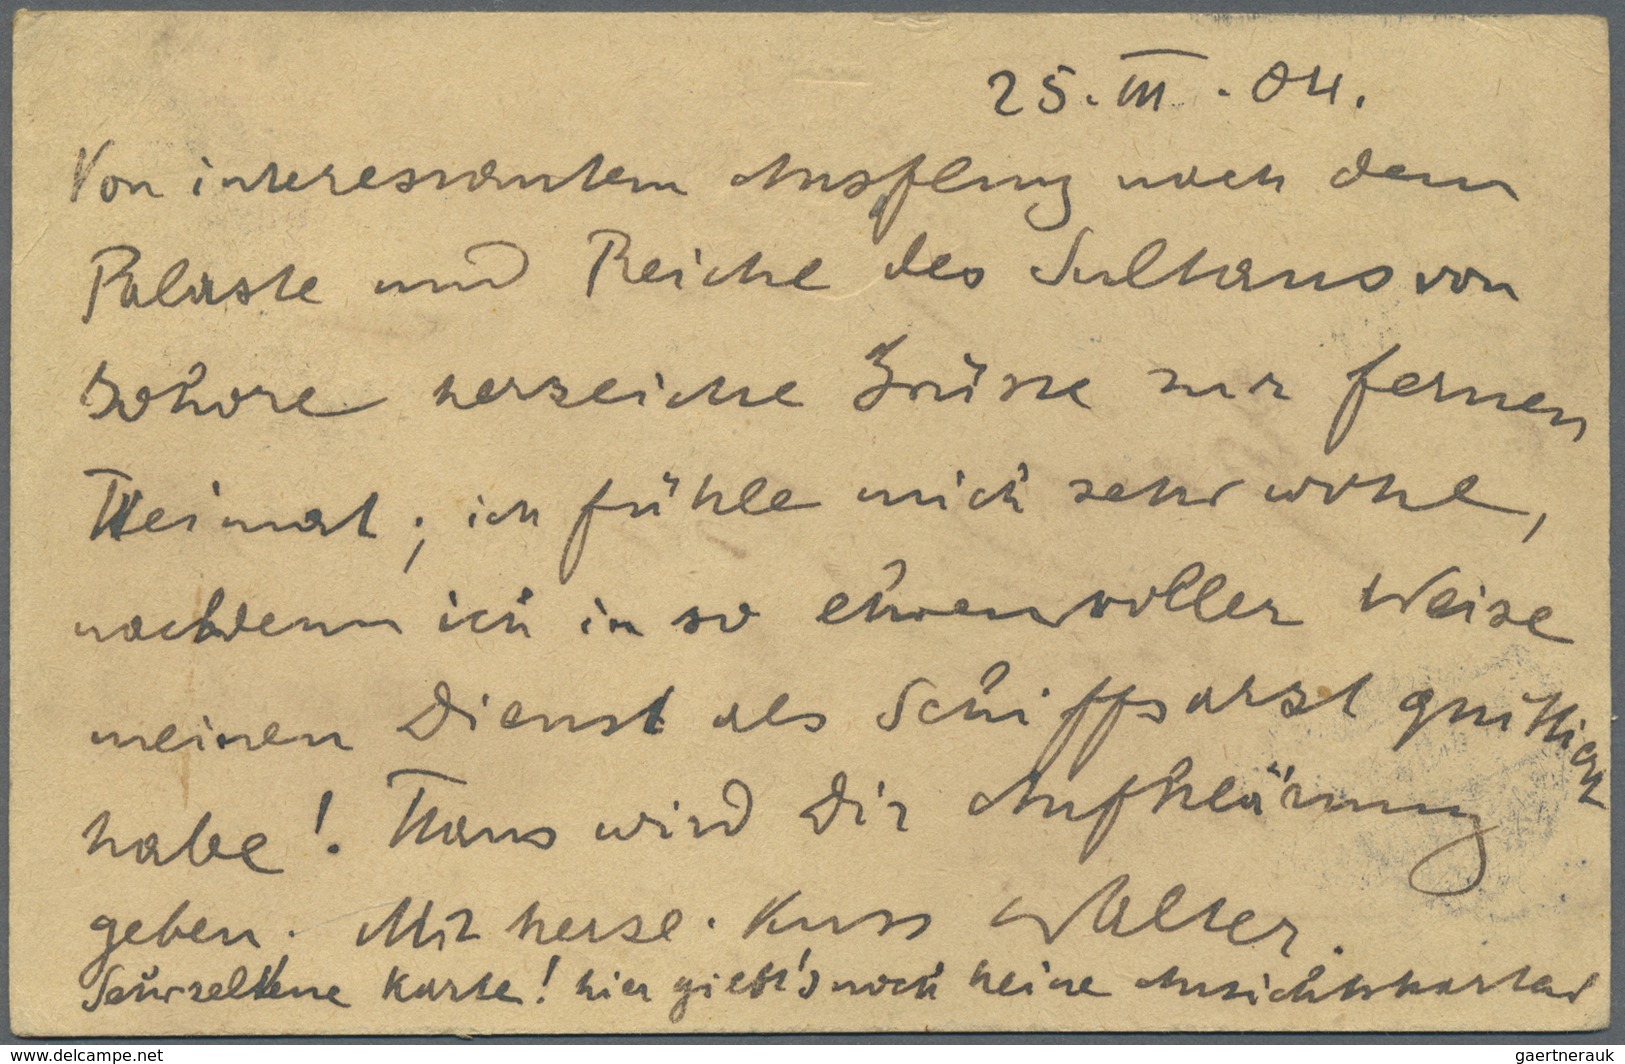 25. III. 04.
Von interessantem Ausflug nach dem
Palaste und Reiche des Sultans von
Johore herzliche Grüsse zur fernen
Heimat; ich fühle mich sehr wohl,
nachdem ich in so ehrenvoller Weise
meinen Dienst als Schiffsarzt quittiert
habe! Hans wird Dir Aufklärung
geben. Mit herzl. Kuss Walter.
Sehr seltene Karte! hier giebt's noch keine Ansichtskarten
www.delcampe.net
gaertnerauk